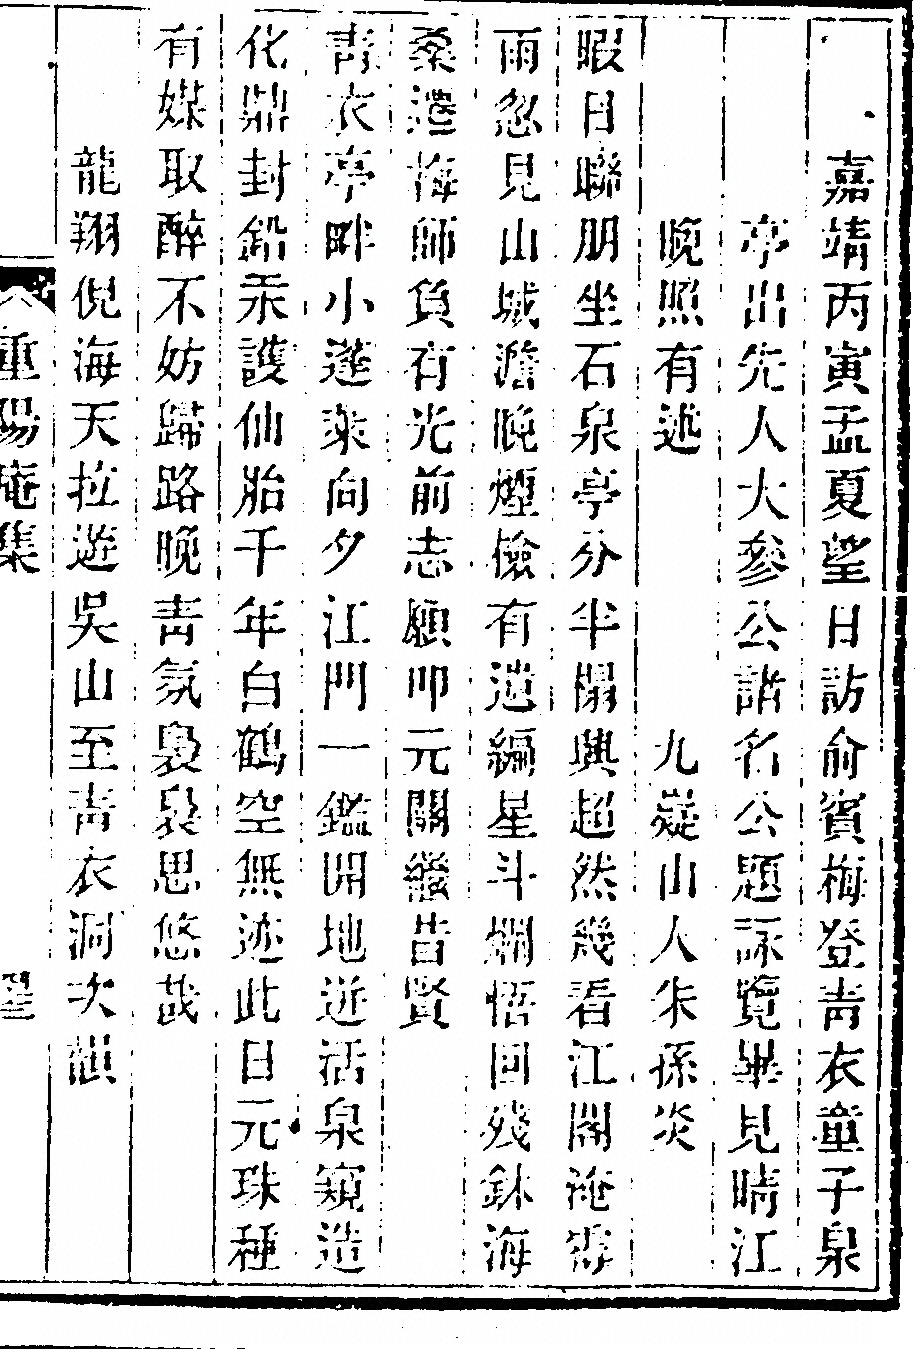 嘉靖丙寅孟夏望日訪俞賓梅登青衣童子泉
亭出先人大參公諸名公題詠覽畢見晴江
晚照有述　　九嶷山人朱孫炎
暇日聯朋坐石泉亭分半榻興超然幾看江閣淹霽
雨忽見山城澹晚煙檢有遺編星斗爛悟回殘鉢海
桑遷梅師負有光前志願叩元關繼昔賢
青衣亭畔小蓬萊向夕江門一鑑開地迸活泉窺造
化鼎封鉛汞護仙胎千年白鶴空無迹此日元珠種
有媒取醉不妨歸路晚青氛裊裊思悠哉
龍翔倪海天拉遊吳山至青衣洞次韻
重陽庵集